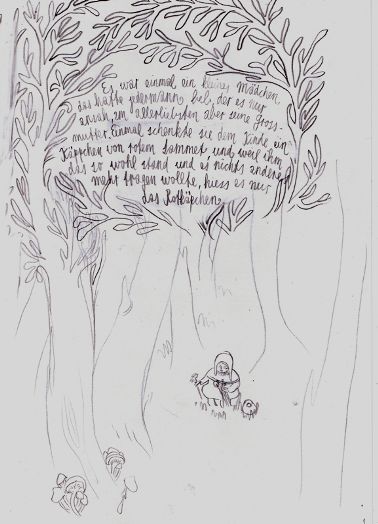 Es war einmal ein kleines Mädchen
das hatte jedermann lieb, der es nur
ansah, am allerliebsten aber seine Gross-
mutter. Einmal schenkte sie dem Kinde ein
Käppchen von rotem Sammet und weil ihm
das so wohl stand und es nichts anderes
mehr tragen wollte, hiess es nur
das Rotkäpchen